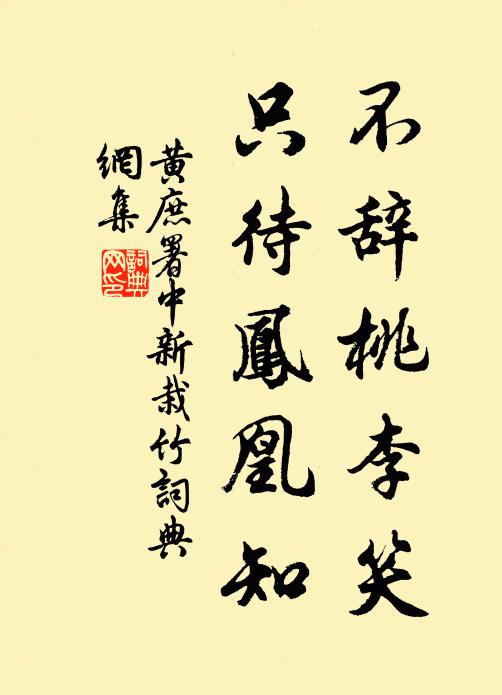 不辞桃李笑
只待鳳凰知
黄庶署中新栽竹詞典
網集
詞典
网印